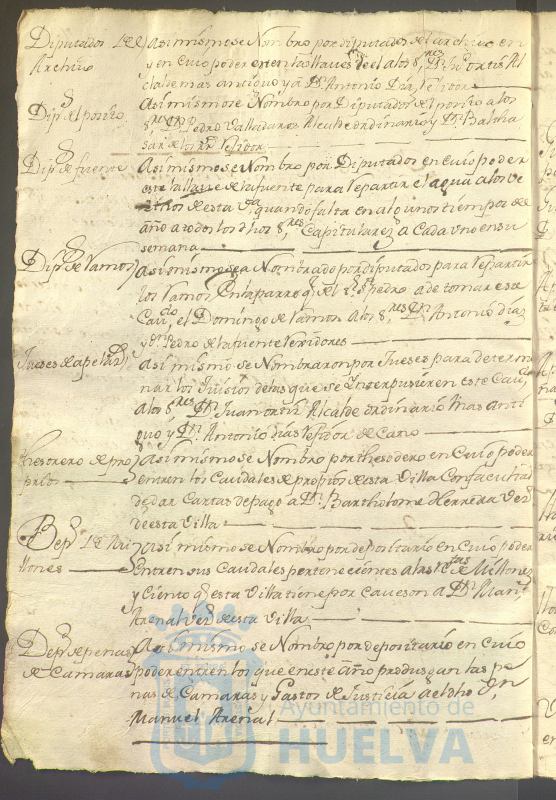 Diputados del Archivo
Asimismo se Nombro por diputados del archivo en
y en cuio poder esten las llaves de el a los S.res D.n Ju.o Ortiz Al
calde mas antiguo y a D.n Antonio Diaz Rejidor
Dip.s del posito
Asimismo se Nombro por Diputados del posito a los
S.res D.n Pedro Valladares Alcalde ordinario y D.n Baltha
sar de los Rejidor
Dip.s de fuente
Asi mismo se Nombro por Diputados en cuio poder
este la llave de la fuente para Repartir el agua a los Ve
de esta V.a quando falta en algunos tiempos de
año a todos los dhos S.res Capitulares a Cada uno en su
semana
Dip.s de Ramos
Asi mismo sea Nombrado por diputados para Repartir
los Ramos En la parro q.l del S.r S.n Pedro a de tomar este
Cav.do el Domingo de Ramos a los S.res D.n Antonio diaz
y D.n Pedro de la fuente Rexidores
Jueses de apelaz.s
Asi mismo se Nombraron por Jueses para determi
nar los Juisios de las que se Interpusieren en este Cav.do
a los S.res D.n Juan ortiz Alcalde ordinario Mas anti
guo y D.n Antonio dias Rejidor de Cano
thesorero de pro
prios
Asi mismo se Nombro por thesorero en cuio poder
entren los Caudales de proprios de esta Villa Con facultad
de dar Cartas de pago a D.n Bartholome Herrera Vez.o
de esta Villa
Dep.o de Mi
llones
Asi mismo se Nombro por depositario en cuio poder
entren sus Caudales pertenecientes a las R.tas de Millones
y Ciento q.e esta Villa tiene por caveson a D.n Man.l
Arenal vez.o de esta Villa
Dep.o de penas
de Camaras
Asi mismo se Nombro por depositario en Cuio
poder entren los que en este año produsgan las pe
nas de Camaras y Gastos de Justicia a el dho D.n
Manuel Arenal
Ayuntamiento de
HUELVA